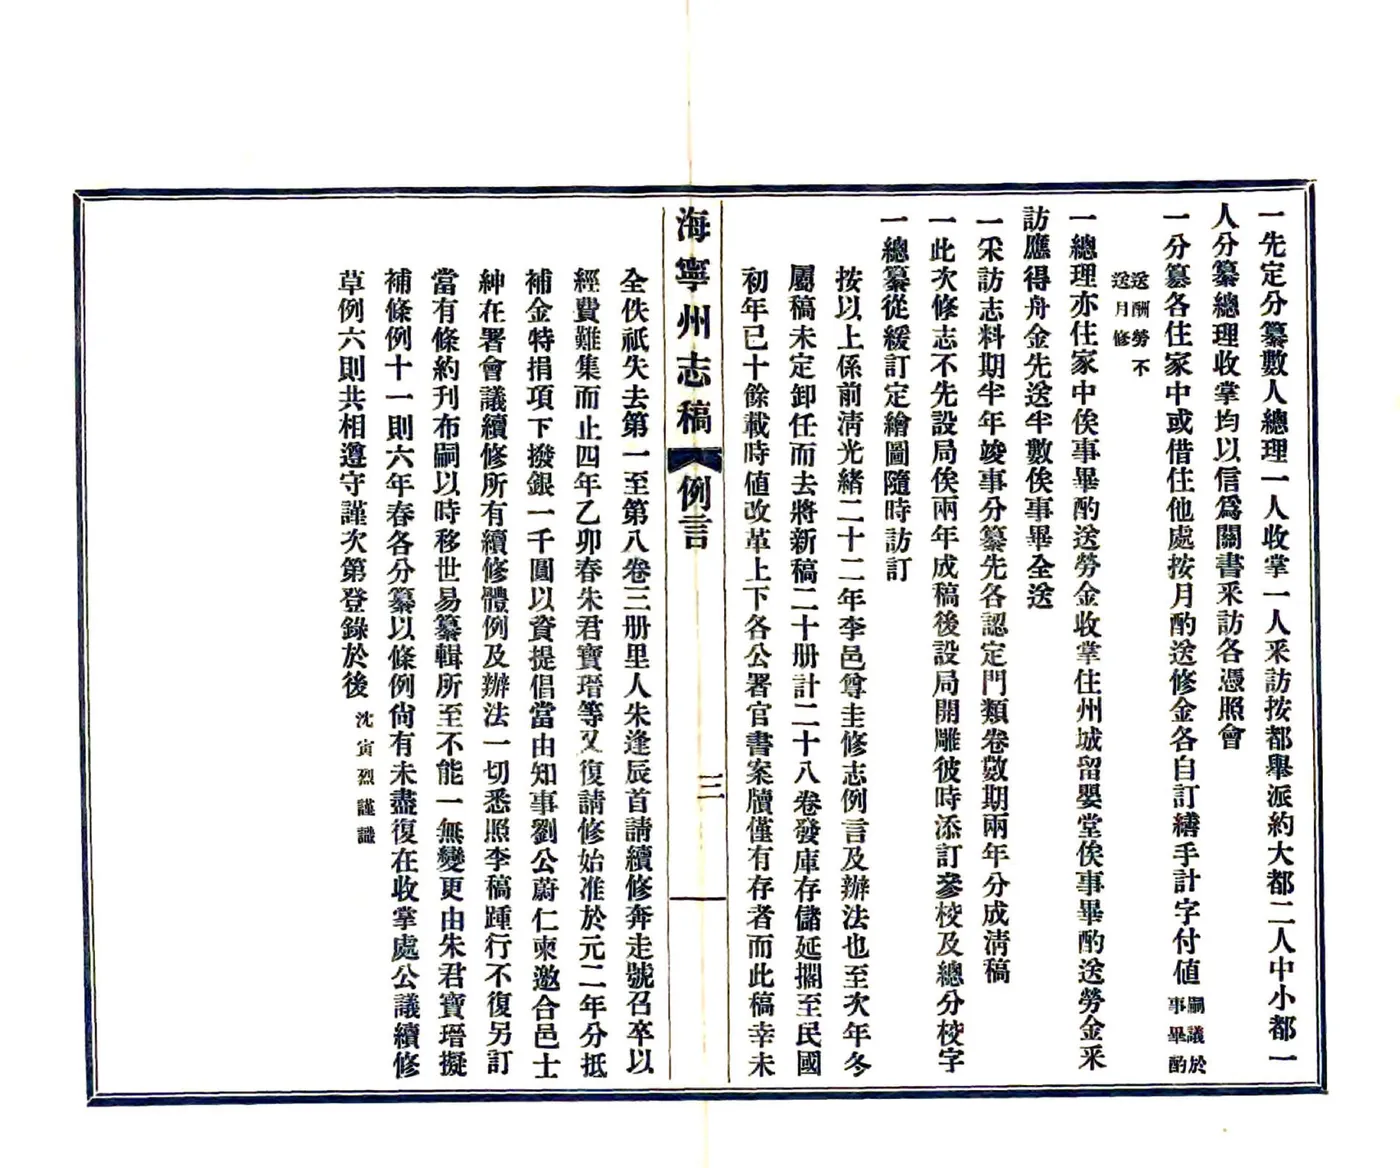 一先定分纂數人總理一人收掌一人采訪按都舉派約大都二人中小都一
人分纂總理收掌均以信爲關書采訪各憑照會
一分纂各住家中或借住他處按月酌送修金各自訂繕手計字付値嗣議於事畢酌
送酬勞不送月修
一總理亦住家中俟事畢酌送勞金收掌住州城留嬰堂俟事畢酌送勞金采
訪應得舟金先送半數俟事畢全送
一采訪志料期半年竣事分纂先各認定門類卷數期兩年分成淸稿
一此次修志不先設局俟兩年成稿後設局開雕彼時添訂參校及總分校字
一總纂從緩訂定繪圖隨時訪訂
按以上係前淸光緒二十二年李邑尊圭修志例言及辦法也至次年冬
屬稿未定卸任而去將新稿二十册計二十八卷發庫存儲延擱至民國
初年已十餘載時値改革上下各公署官書案牘僅有存者而此稿幸未
海寧州志稿 例言 三
全佚祇失去第一至第八卷三册里人朱逢辰首請續修奔走號召卒以
經費難集而止四年乙卯春朱君寶瑨等又復請修始准於元二年分抵
補金特捐項下撥銀一千圓以資提倡當由知事劉公蔚仁柬邀合邑士
紳在署會議續修所有續修體例及辦法一切悉照李稿踵行不復另訂
當有條約刋布嗣以時移世易纂輯所至不能一無變更由朱君寶瑨擬
補條例十一則六年春各分纂以條例尙有未盡復在收掌處公議續修
草例六則共相遵守謹次第登錄於後 沈寅烈謹識